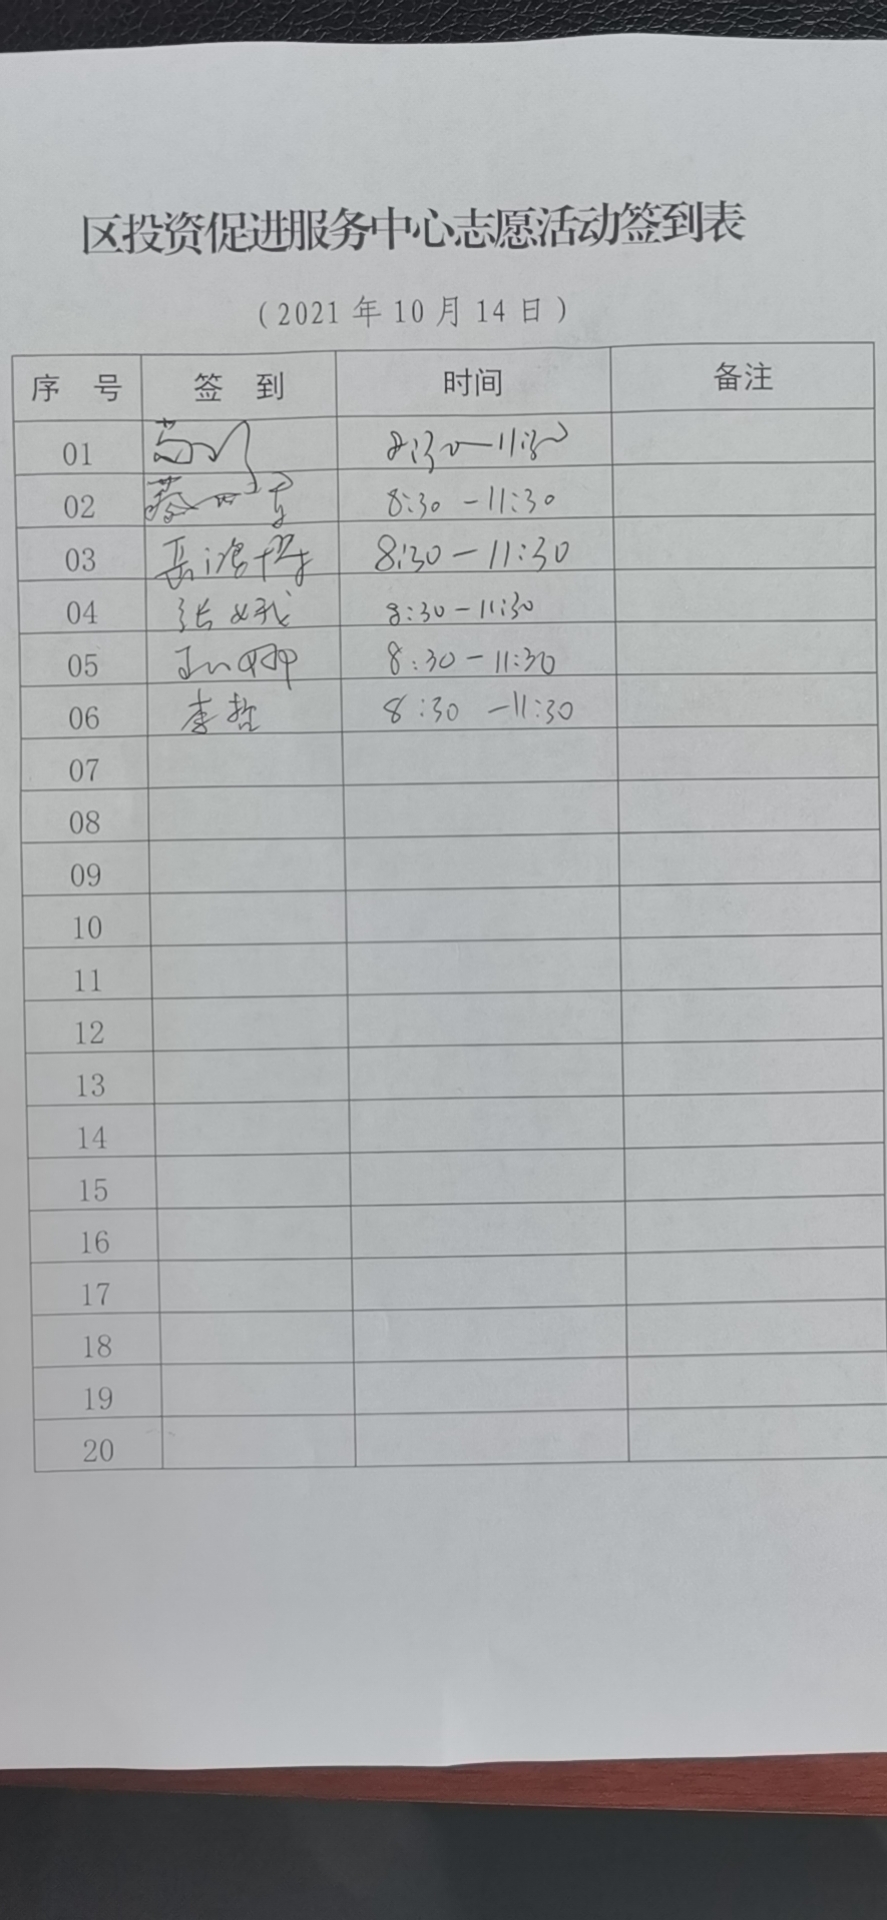 区投资促进服务中心志愿活动签到表
（2021年10月14日）
序 号 签 到 时间 备注
01 8:30—11:30
02 8:30-11:30
03 8:30-11:30
04 8:30-11:30
05 8:30-11:30
06 李哲 8:30-11:30
07
08
09
10
11
12
13
14
15
16
17
18
19
20